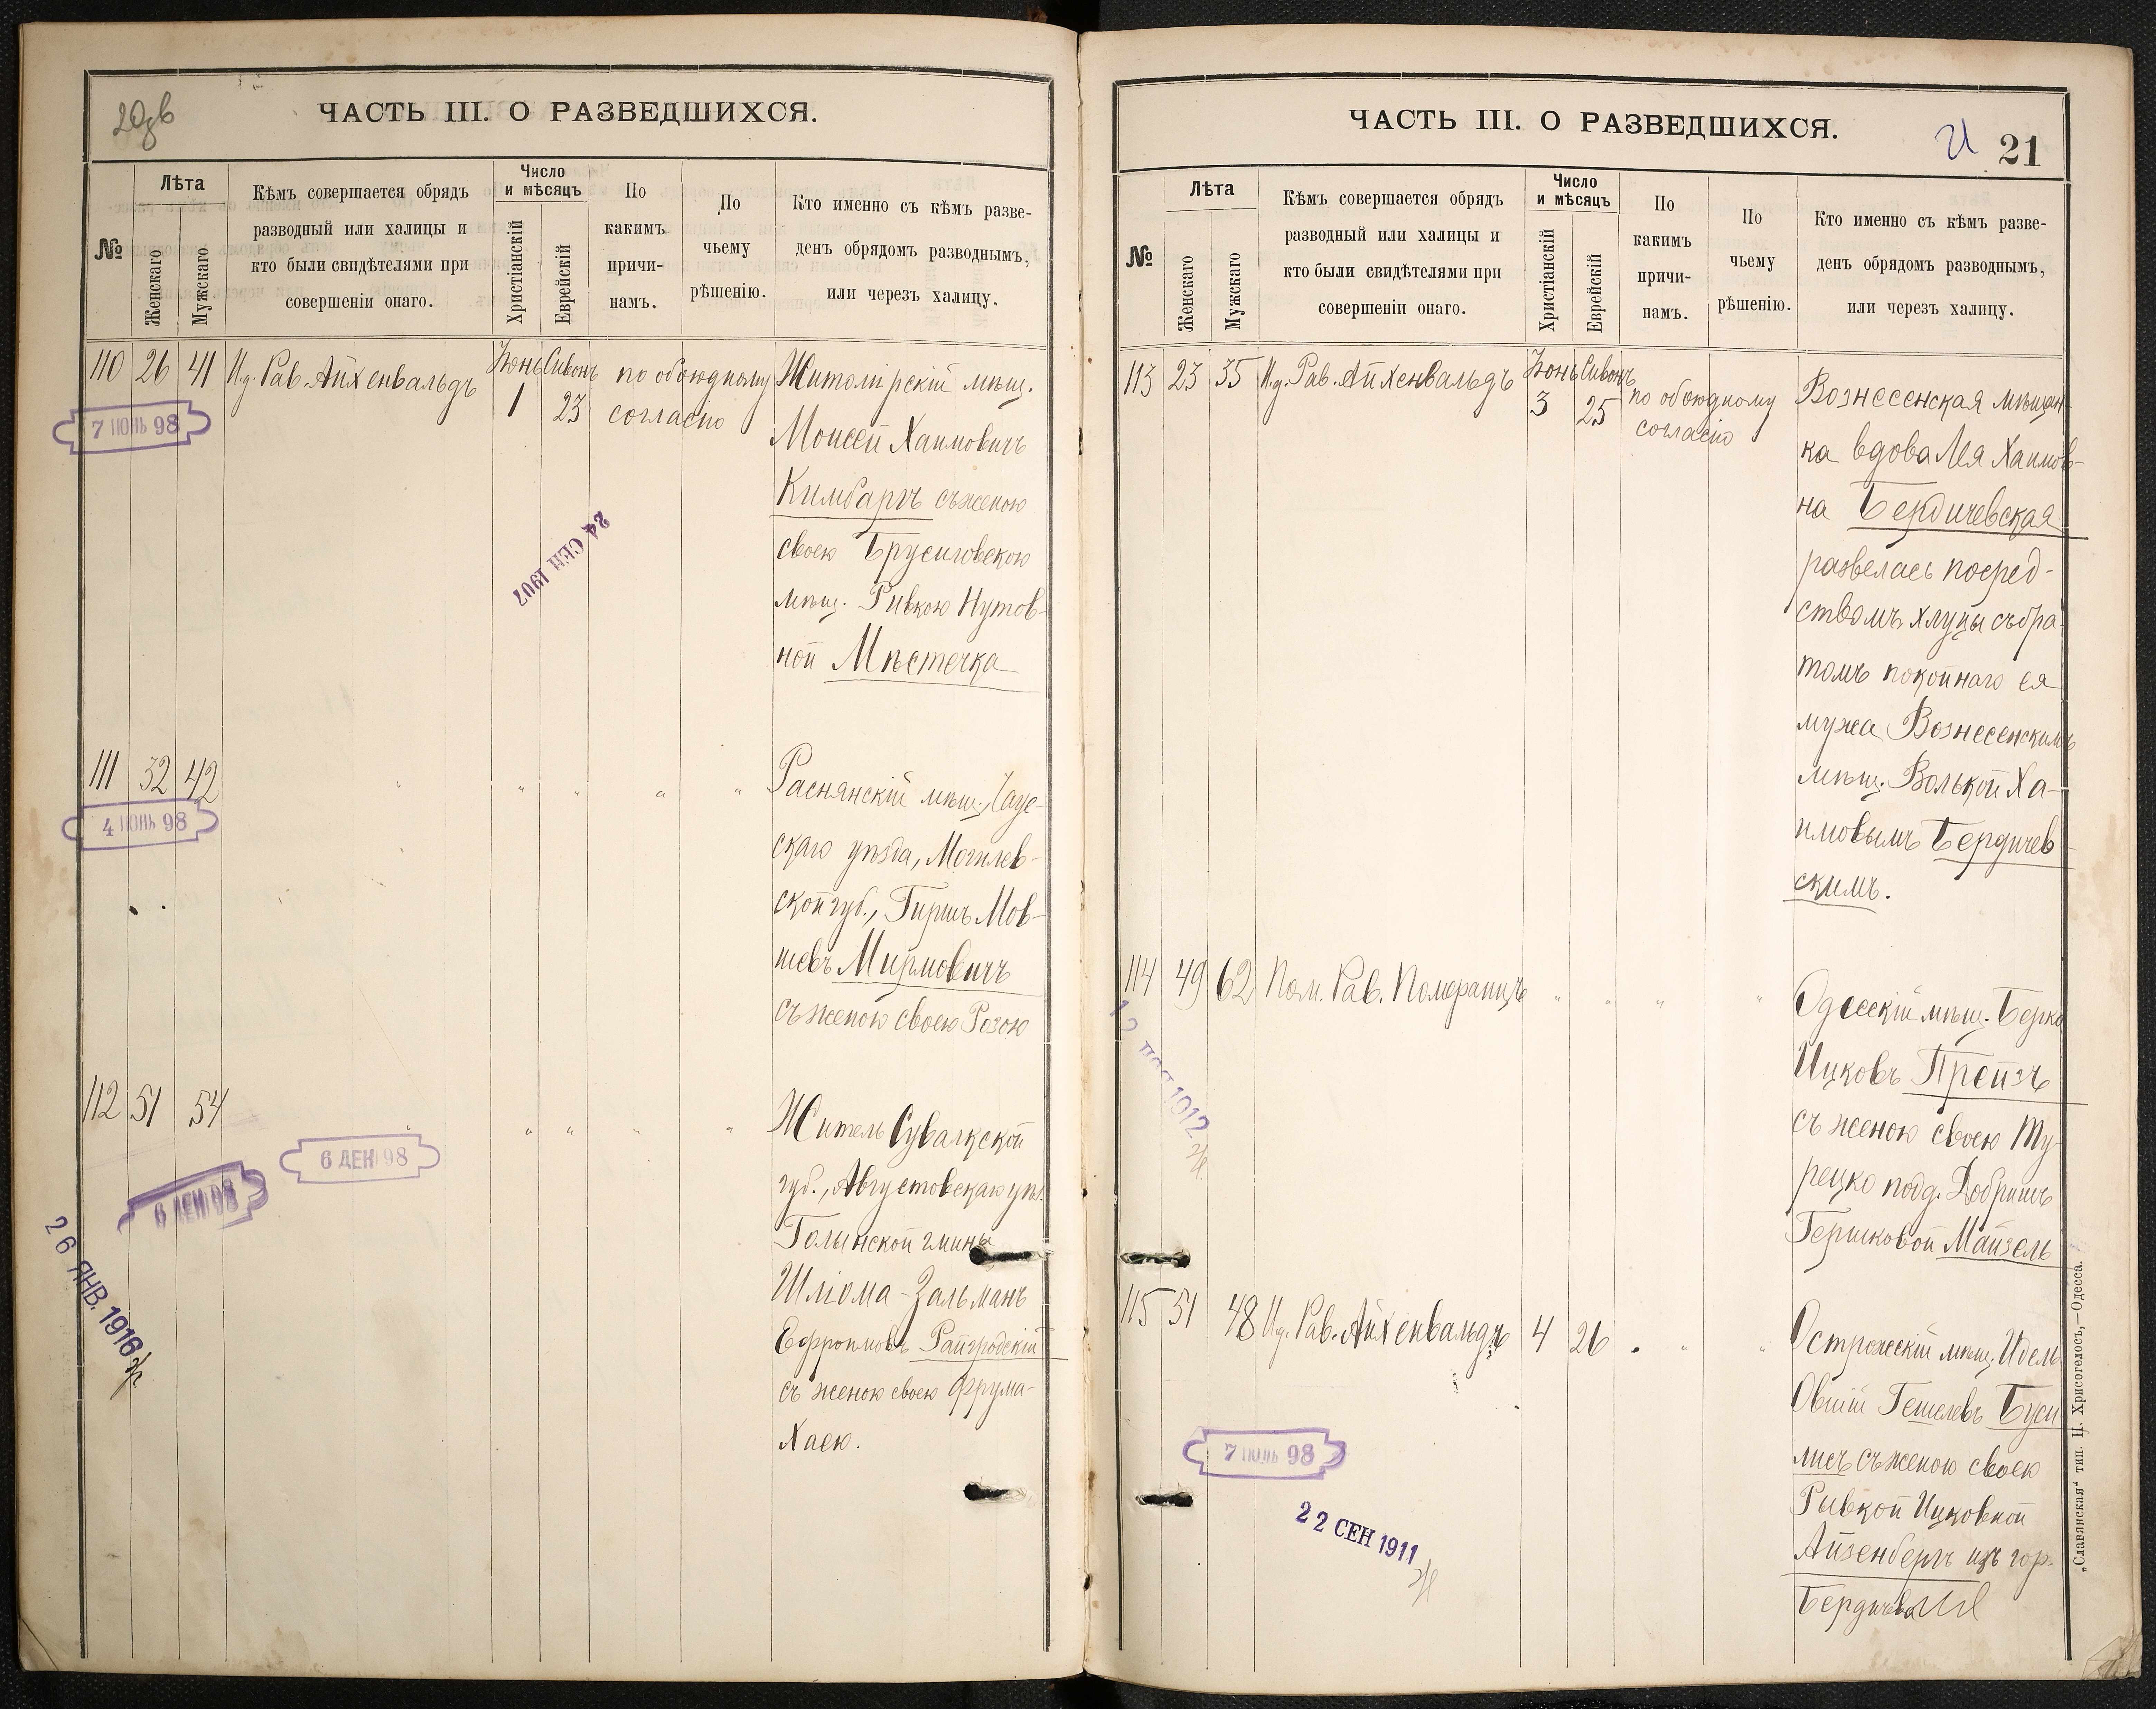 20об
ЧАСТЬ III. О РАЗВЕДШИХСЯ.
№
Лѣта
Женскаго
Мужскаго
Кѣмъ совершается обрядъ
разводный или халицы и
кто были свидѣтелями при
совершеніи онаго.
Число
и мѣсяцъ
Христіанскій
Еврейскій
По
какимъ
причи-
намъ.
По
чьему
рѣшенію.
Кто именно съ кѣмъ разве-
денъ обрядомъ разводнымъ,
или черезъ халицу.
110 26 41 И.д. Рав. Айхенвальдъ Іюнь Сивонъ
1 23
по обоюдному
согласію
Житомірскій мѣщ.
Моисей Хаимовичъ
Кимбаргъ съ женою
своею Брусиловскою
мѣщ. Ривкою Нутов-
ной Мѣстечка
7 ІЮНЬ 98
24 СЕН 1907
111 32 42 " " " " "
Раснянскій мѣщ., Чаус-
скаго уѣзда, Могилев-
ской губ., Гиршъ Мов-
шевъ Мирмовичъ
съ женою своею Розою
4 ІЮНЬ 98
112 51 54 " " " " "
Житель Сувалкской
губ., Августовскаго уѣз.
Голынской гмины
Шліома-Зальманъ
Ефроимовъ Райгродскій
съ женою своею Фрума-
Хаею.
6 ДЕК 98
6 ДЕК 98
26 ЯНВ. 1916
ЧАСТЬ III. О РАЗВЕДШИХСЯ.
21 21
№
Лѣта
Женскаго
Мужскаго
Кѣмъ совершается обрядъ
разводный или халицы и
кто были свидѣтелями при
совершеніи онаго.
Число
и мѣсяцъ
Христіанскій
Еврейскій
По
какимъ
причи-
намъ.
По
чьему
рѣшенію.
Кто именно съ кѣмъ разве-
денъ обрядомъ разводнымъ,
или черезъ халицу.
113 23 35 И.д. Рав. Айхенвальдъ Іюнь Сивонъ
3 25
по обоюдному
согласію
Вознесенская мѣщан-
ка вдова Лея Хаимов-
на Бердичевская
развелась посред-
ствомъ хлуцы съ бра-
томъ покойнаго ея
мужа Вознесенскимъ
мѣщ. Волькой Ха-
имовымъ Бердичев-
скимъ.
114 49 62 Пом. Рав. Померанцъ " " " "
Одесскій мѣщ. Берко
Ицковъ Прейзъ
съ женою своею Ту-
рецко подд. Добришъ
Гершковой Майзель
1912
115 51 48 И.д. Рав. Айхенвальдъ 4 26 " " "
Острожскій мѣщ. Идель
Овшій Гешелевъ Буси-
лисъ съ женою своею
Рывкой Ицковной
Айзенбергъ изъ гор.
Бердичева
7 ІЮЛЬ 98
22 СЕН 1911
„Славянская“ тип. Н. Хрисогелосъ,—Одесса.